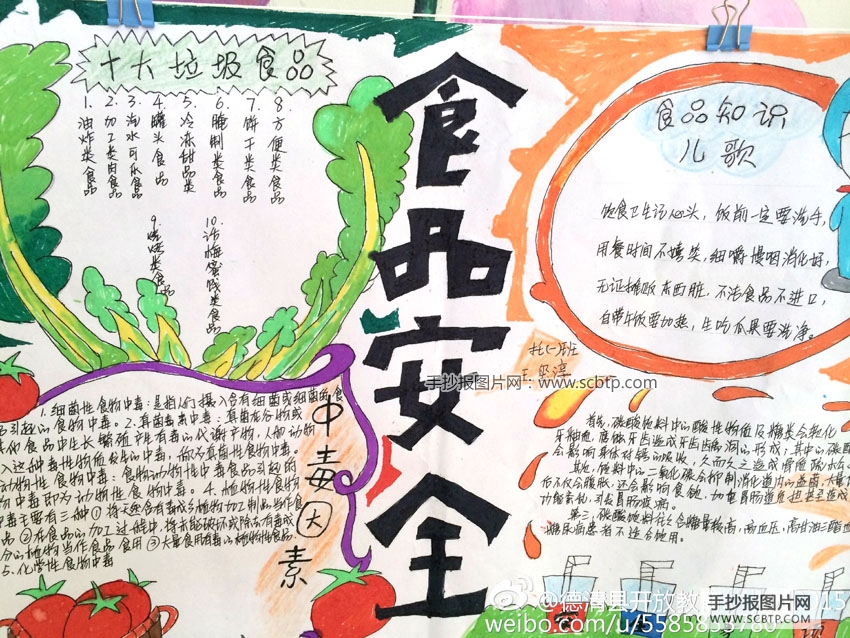 十大垃圾食品
1.油炸类食品
2.加工类肉食品
3.汽水可乐食品
4.罐头食品
5.冷冻甜品类
6.腌制类食品
7.饼干类食品
8.方便类食品
9.烧烤类食品
10.话梅蜜饯类食品
食品安全
食品知识
儿歌
饮食卫生记心头，饭前一定要洗手，
用餐时间不嬉笑，细嚼慢咽消化好，
无证摊贩东西脏，不洁食品不进口，
自带午饭要加热，生吃瓜果要洗净。
手抄报图片网：www.scbtp.com
中毒因素
1.细菌性食物中毒：是指人们摄入含有细菌或细菌毒
品引起的食物中毒。2.真菌毒素中毒：真菌在谷物或
其他食品中生长繁殖产生有毒的代谢产物，人和动物
入这种毒性物质发生的中毒，称为真菌性食物中毒。
动物性食物中毒：食物动物性中毒食品引起的
物中毒即为动物性食物中毒。4.植物性食物
中毒主要有三种①将天然含有毒成分植物加工制品当作食
品②在食品的加工过程中将未能破坏或除去有毒成
分的植物当作食品食用③大量食用有毒的植物性食品。
5.化学性食物中毒
首先，碳酸饮料中的酸性物质及糖类会软化
牙釉质，腐蚀牙齿造成牙齿龋洞的形成，其中的碳酸
会影响身体对钙的吸收，久而久之造成骨骼疏
其次，饮料中的二氧化碳会抑制消化道内的益菌，大量
作不仅会腹胀，还会影响食欲，加重胃肠道负担甚至造成
功能紊乱，引发胃肠疾病。
第三，碳酸饮料往往含糖量较高，高血压，高甘油三酯
糖尿病患者不适合饮用。
@德清县开放教
015
weibo.com/u/5585893780
手抄报图片网
SCBTP.COM